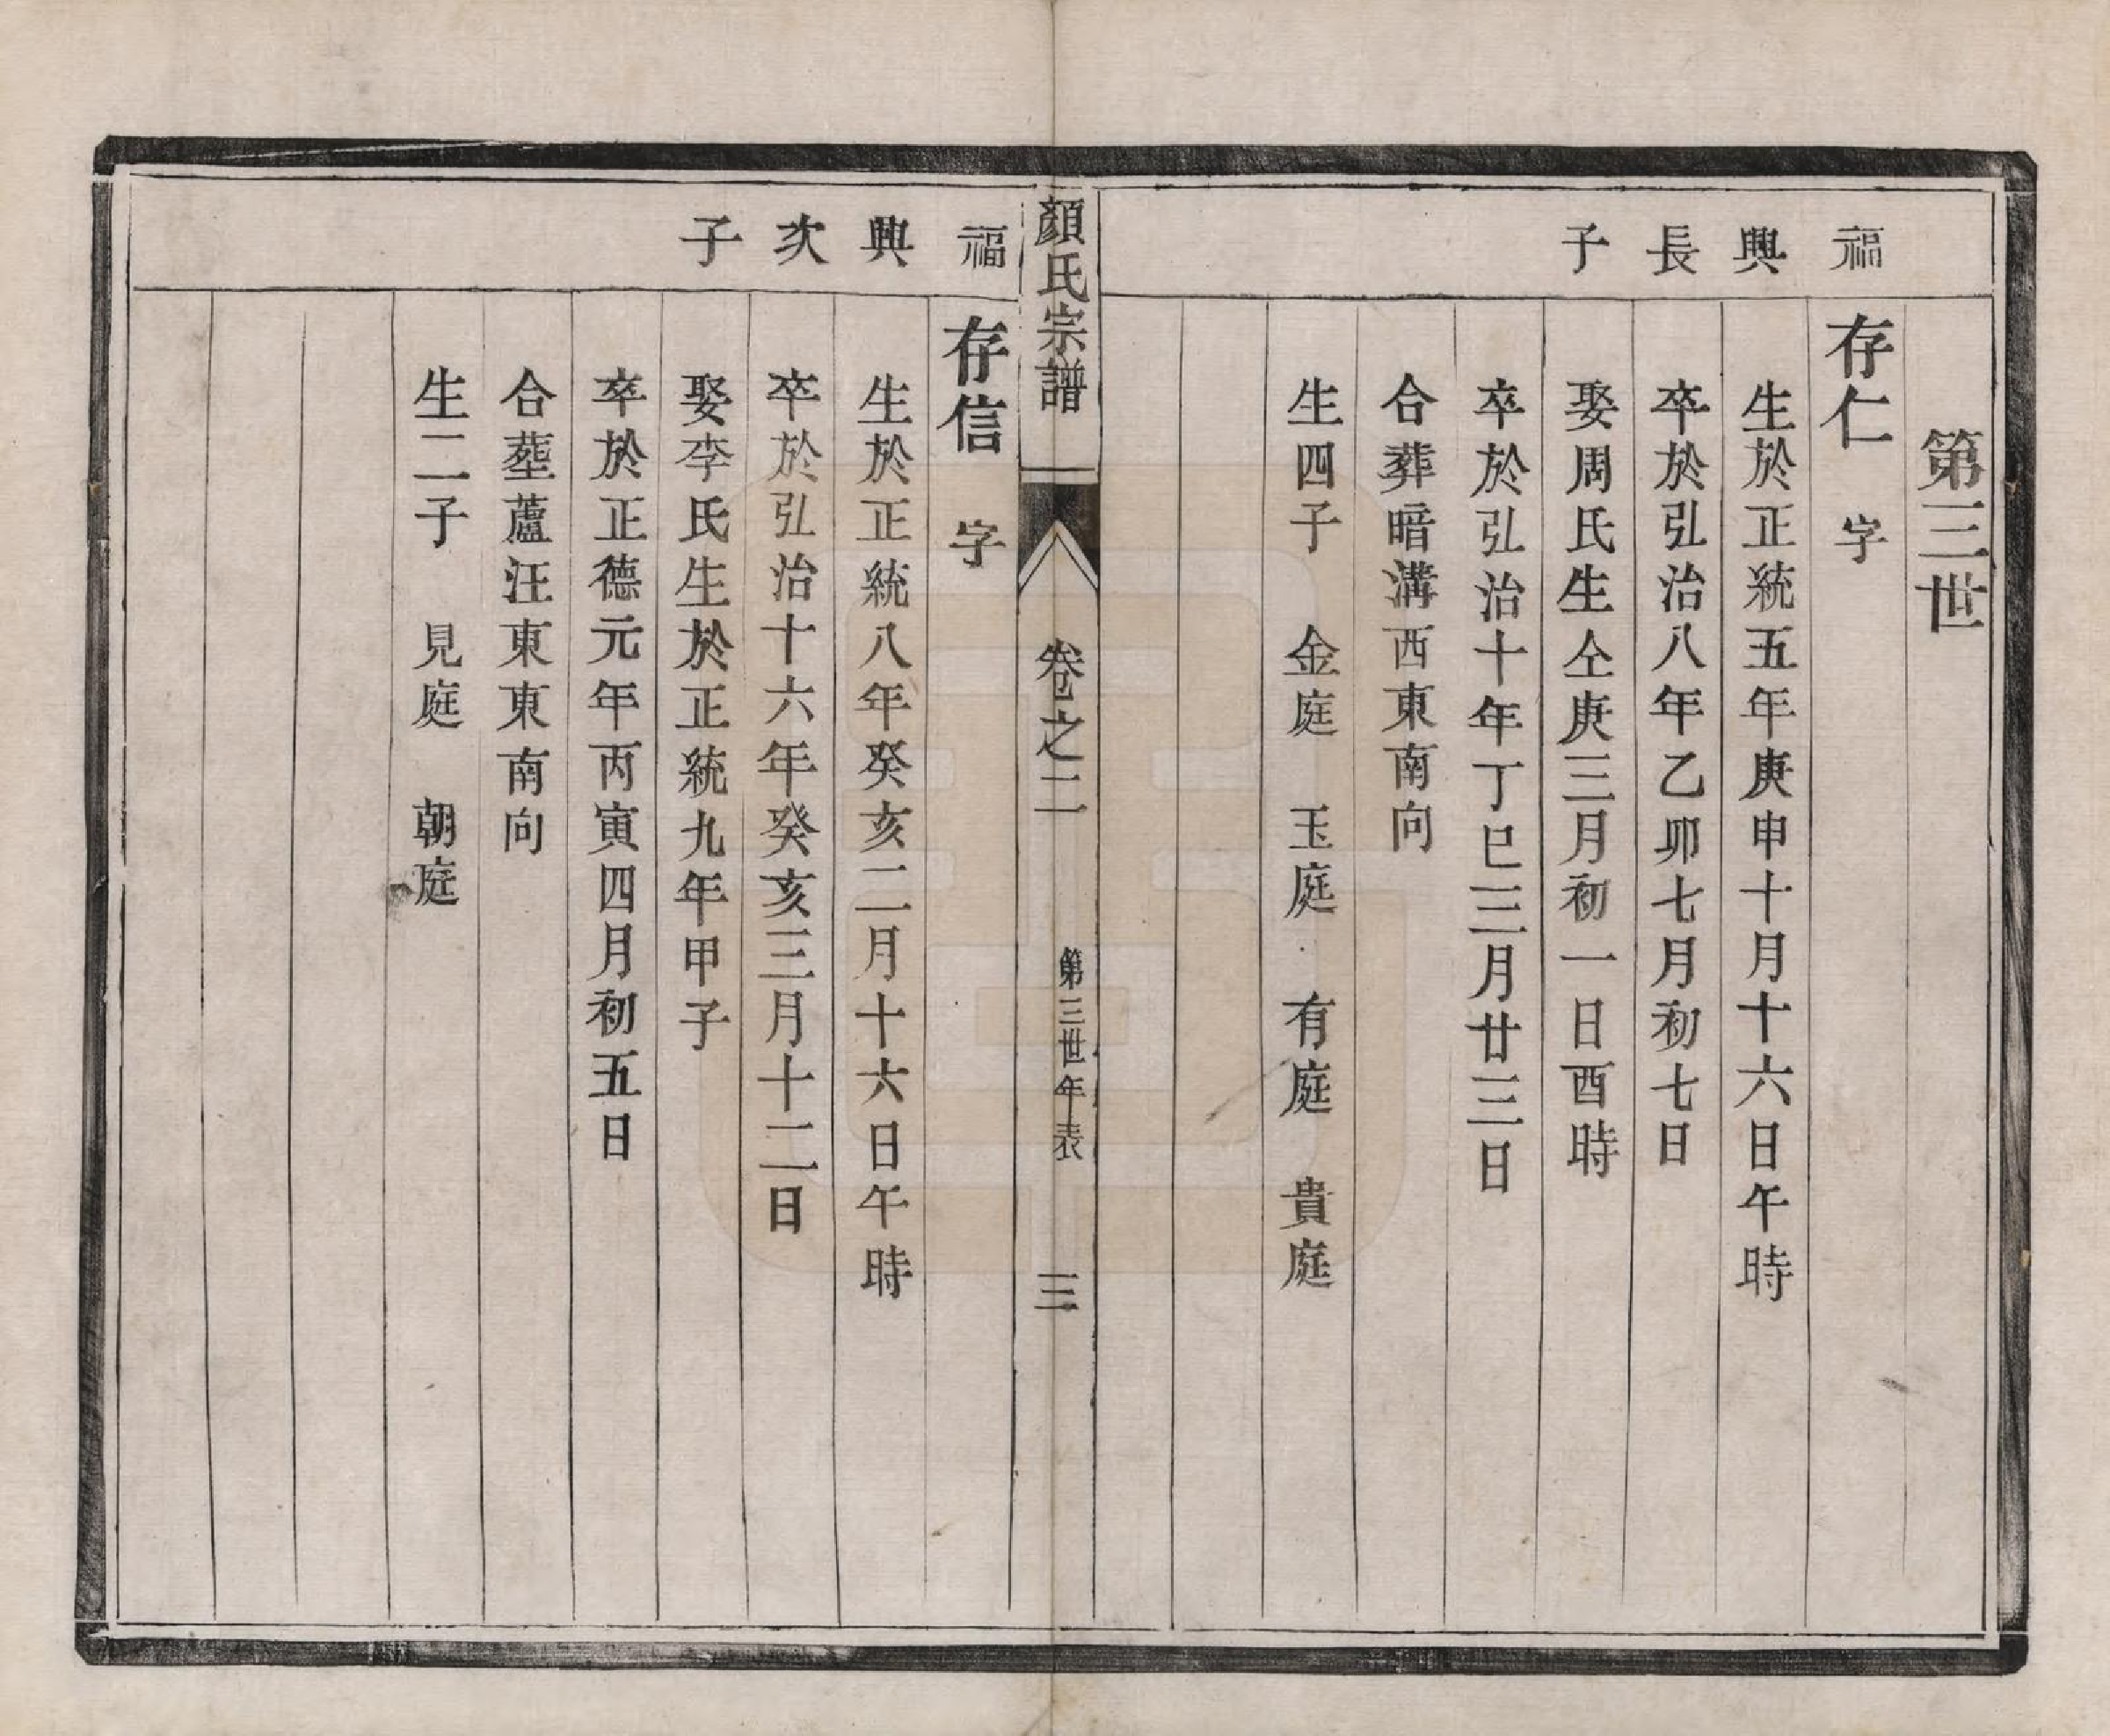 第三世
福興長子
存仁 字
生於正統五年庚申十月十六日午時
卒於弘治八年乙卯七月初七日
娶周氏生仝庚三月初一日酉時
卒於弘治十年丁巳三月廿三日
合葬暗溝西東南向
生四子 金庭 玉庭 有庭 貴庭
顏氏宗譜 卷之二 第三世年表 三
福興次子
存信 字
生於正統八年癸亥二月十六日午時
卒於弘治十六年癸亥三月十二日
娶李氏生於正統九年甲子
卒於正德元年丙寅四月初五日
合塟蘆汪東東南向
生二子 見庭 朝庭